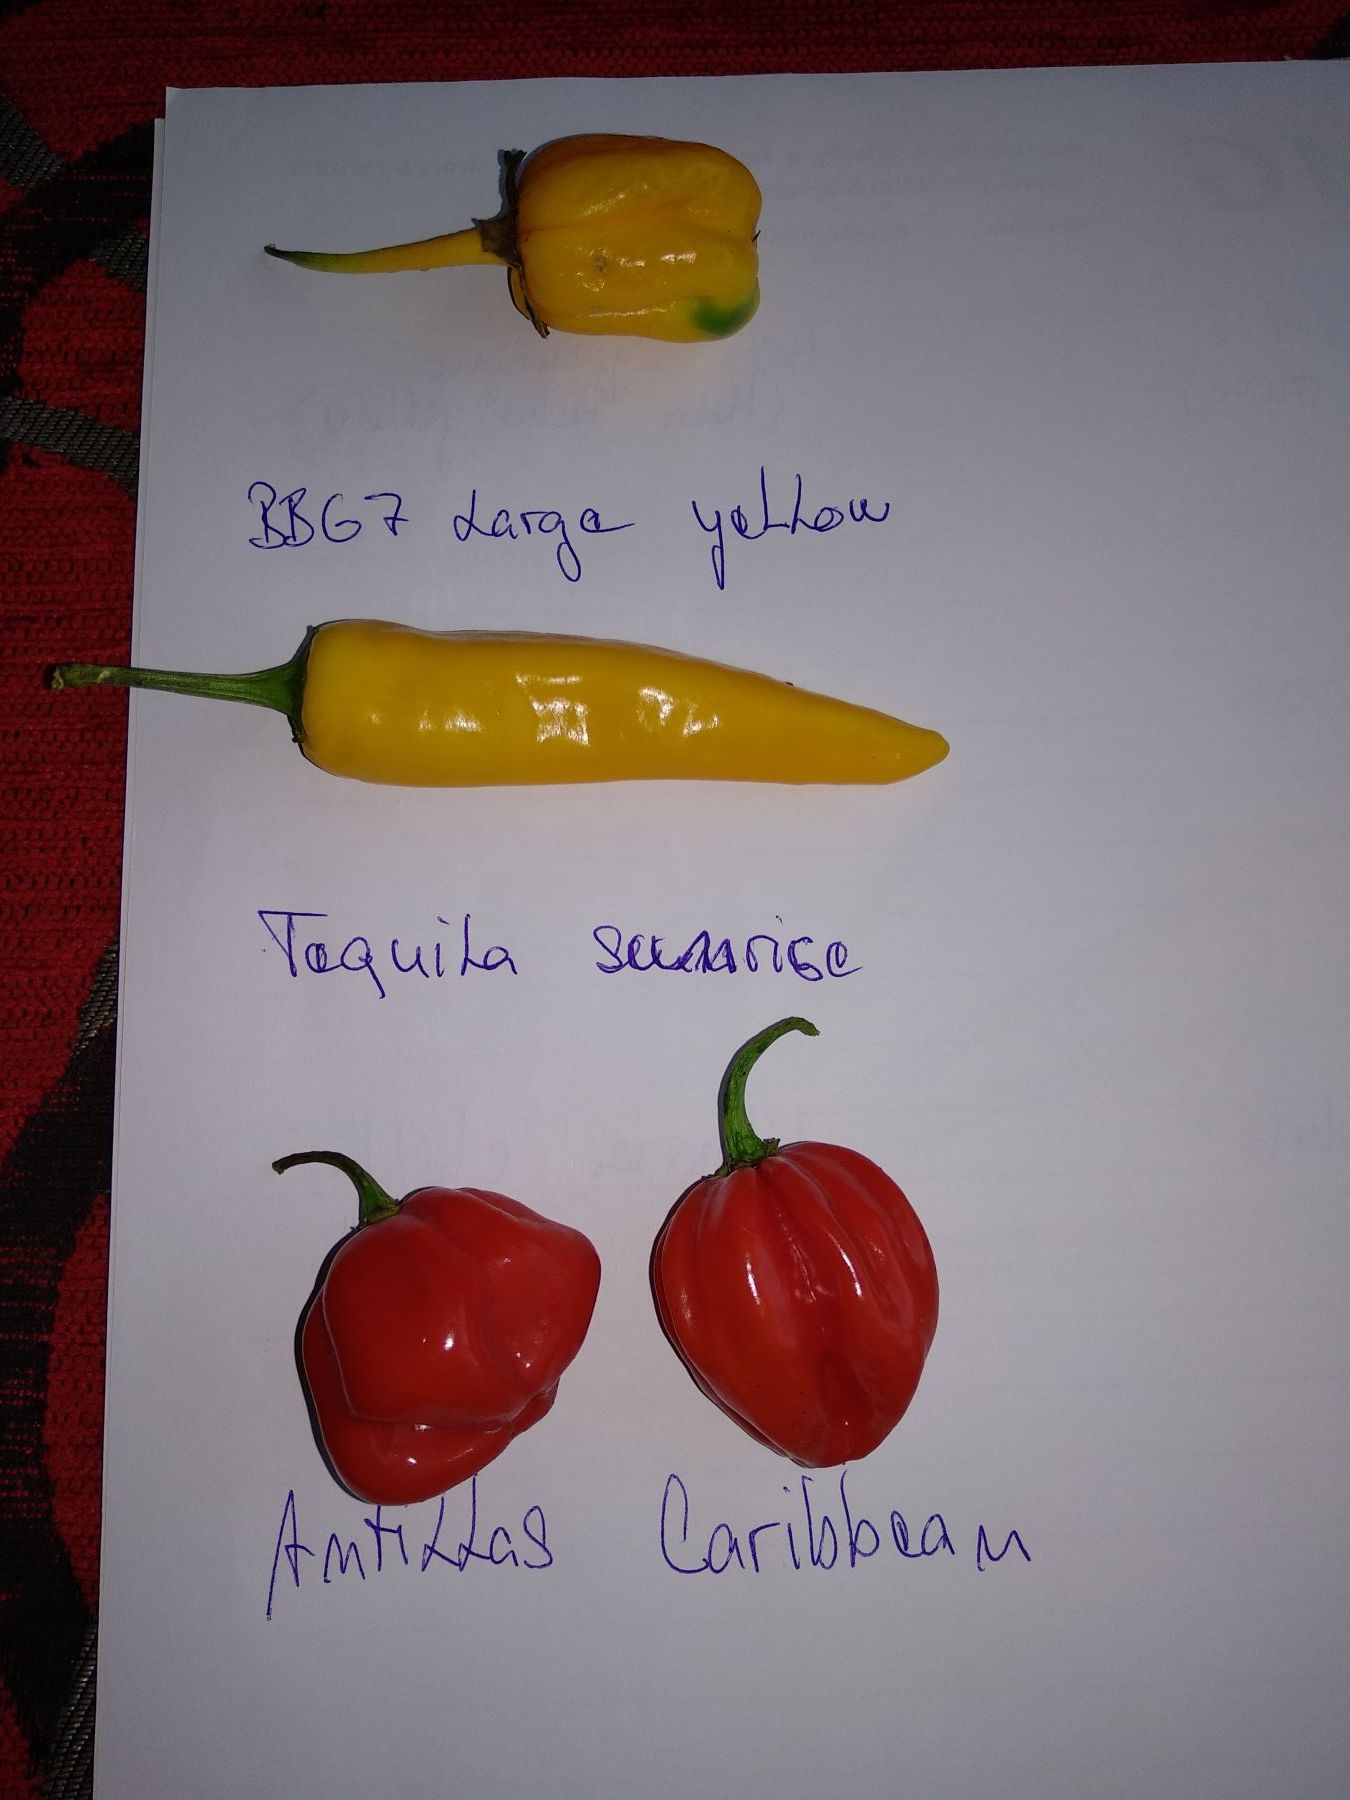 BBG7 Large yellow
Tequila sunrise
Antillas Caribbean